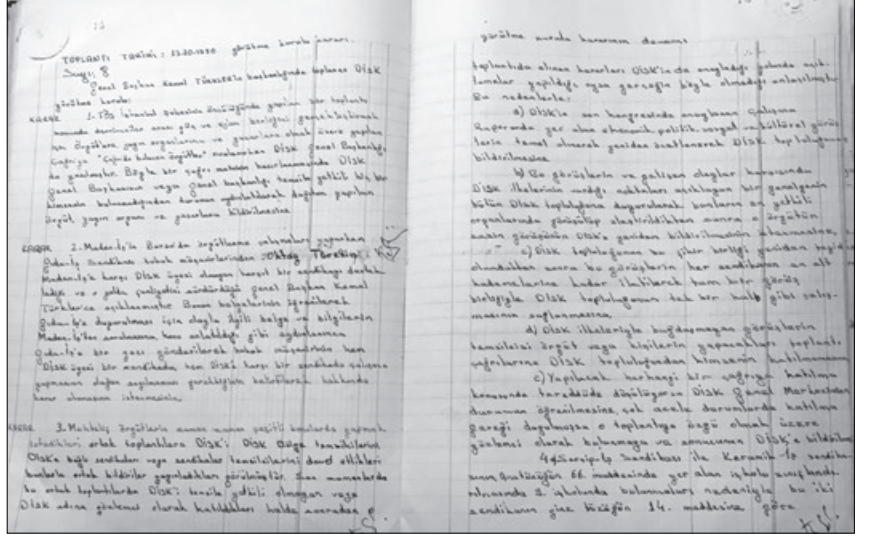 TOPLANTI TARİHİ: 23.20.1970 yürütme kurulu kararı.
Sayı, 8
Genel Başkan Kemal Türkler'in başkanlığında toplanan DİSK
yürütme kurulu:
KARAR 1. İstanbul şubesinin öncülüğünde yapılan bir toplantı
sonunda devrimciler arası güç ve eylem birliğini gerçekleştirmek
için örgütlere, yayın organlarına ve yazarlara olmak üzere yapılan
çağrıya "Çağrıda bulunan örgütler" arasında DİSK Genel Başkanlığı
da yazılmıştır. Böyle bir çağrı metninin hazırlanmasında DİSK
Genel Başkanının veya genel başkanlığı temsile yetkili hiç bir
kimsenin bulunmadığından durumun aydınlatılarak dağıtım yapılan
örgüt, yayın organı ve yazarlara bildirilmesine
KARAR 2. Maden-İş'in Bursa'da örgütlenme çalışmaları yaparken
Gıda-İş Sendikası hukuk müşavirlerinden Oktay
Maden-İş'e karşı DİSK üyesi olmayan karşıt bir sendikayı destek
lediği ve o yolda faaliyetini sürdürdüğü Genel Başkan Kemal
Türkler'ce açıklanmıştır. Bunun belgelerinin öğrenilerek
Gıda-İş'e duyurulması için olayla ilgili belge ve bilgilerin
Maden-İş'ten sorulmasına, konu anlatıldığı gibi aydınlanınca
Gıda-İş'e bir yazı gönderilerek hukuk müşavirinin hem
DİSK üyesi bir sendikada, hem DİSK'e karşı bir sendikada çalışma
yapmasının olağan sayılmaması gerektiğinin hakkında
karar alınmasının istenmesine,
KARAR 3. Muhtelif örgütlerin zaman zaman çeşitli konularda yapmak
istedikleri ortak toplantılara DİSK'i DİSK Bölge temsilcilerini
DİSK'e bağlı sendikaları veya sendikalar temsilcilerini davet ettikleri
bunlarla ortak bildiriler yayınladıkları görülmüştür. Son zamanlarda
bu ortak toplantılarda DİSK'i temsile yetkili olmayan veya
DİSK adına gözlemci olarak katıldıkları halde sonradan o
yürütme kurulu kararının devamı
toplantıda alınan kararları DİSK'in de onayladığı yolunda açık-
lamalar yapıldığı oysa gerçeğin böyle olmadığı anlaşılmıştır
Bu nedenlerle:
a) DİSK'in son kongresinde onaylanan Çalışma
Raporunda yer alan ekonomik, politik, sosyal ve kültürel görüş
lerin temel alınarak yeniden özetlenerek DİSK topluluğuna
bildirilmesine
b) Bu görüşlerin ve gelişen olaylar karşısında
DİSK ilkelerinin vardığı noktaları açıklayan bir genelgenin
bütün DİSK topluluğuna duyurularak bunların en yetkili
organlarında görüşülüp eleştirildikten sonra o örgütün
kesin görüşünün DİSK'e yeniden bildirilmesinin istenmesine,
c) DİSK topluluğunun bu fikir birliği yeniden tespit
olunduktan sonra bu görüşlerin her sendikanın en alt
kademelerine kadar iletilerek tam bir görüş
birliğiyle DİSK topluluğunun tek bir halk gibi çalış-
masının sağlanmasına,
d) DİSK ilkeleriyle bağdaşmayan görüşlerin
temsilcisi örgüt veya kişilerin yapacakları toplantı
çağrılarına DİSK topluluğundan kimsenin katılmaması
e) Yapılacak herhangi bir çağrıya katılma
konusunda tereddüde düşülüyorsa DİSK Genel Merkezinden
durumun öğrenilmesine, çok acele durumlarda katılma
gereği duyulmuşsa o toplantıya özgü olmak üzere
gözlemci olarak bulunmaya ve sonucunun DİSK'e bildirilme
4. Serçip-İş Sendikası ile Keramik-İş sendika-
sının Anatüzüğün 66. maddesinde yer alan işkolu sınıflandı-
rılmasında 2. işkolunda bulunmaları nedeniyle bu iki
sendikanın yine tüzüğün 14. maddesine göre